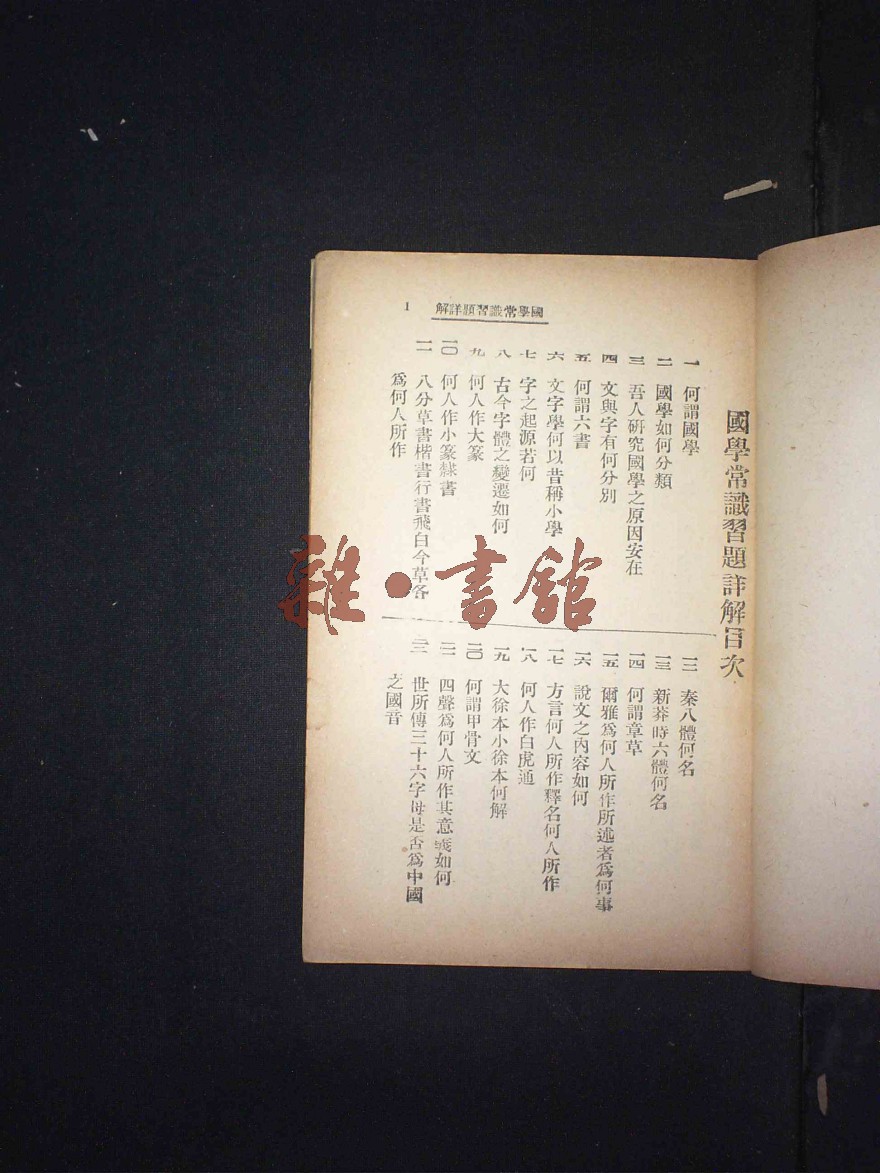 國學常識習題詳解 1
國學常識習題詳解目次
一 何謂國學
二 國學如何分類
三 吾人研究國學之原因安在
四 文與字有何分別
五 何謂六書
六 文字學何以昔稱小學
七 字之起源若何
八 古今字體之變遷如何
九 何人作大篆
一〇 何人作小篆隸書
一一 八分草書楷書行書飛白今草各
爲何人所作
一二 秦八體何名
一三 新莽時六體何名
一四 何謂章草
一五 爾雅爲何人所作所述者爲何事
一六 說文之內容如何
一七 方言何人所作釋名何人所作
一八 何人作白虎通
一九 大徐本小徐本何解
二〇 何謂甲骨文
二一 四聲爲何人所作其意義如何
二二 世所傳三十六字母是否爲中國
之國音
雜·書館